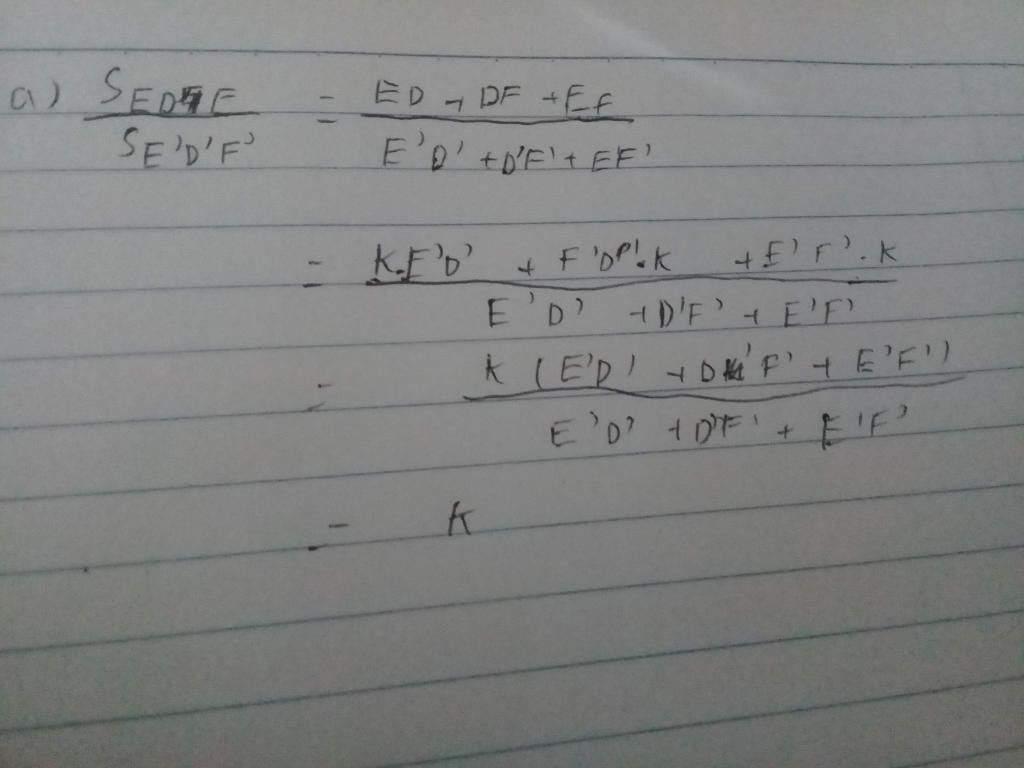 a) S EDF = ED + DF + EF
S E'D'F' E'D' + D'F' + EF'
= K.E'D' + F'D'.K + E'F'.K
E'D' + D'F' + E'F'
= K (E'D' + D'F' + E'F')
E'D' + D'F' + E'F'
= K